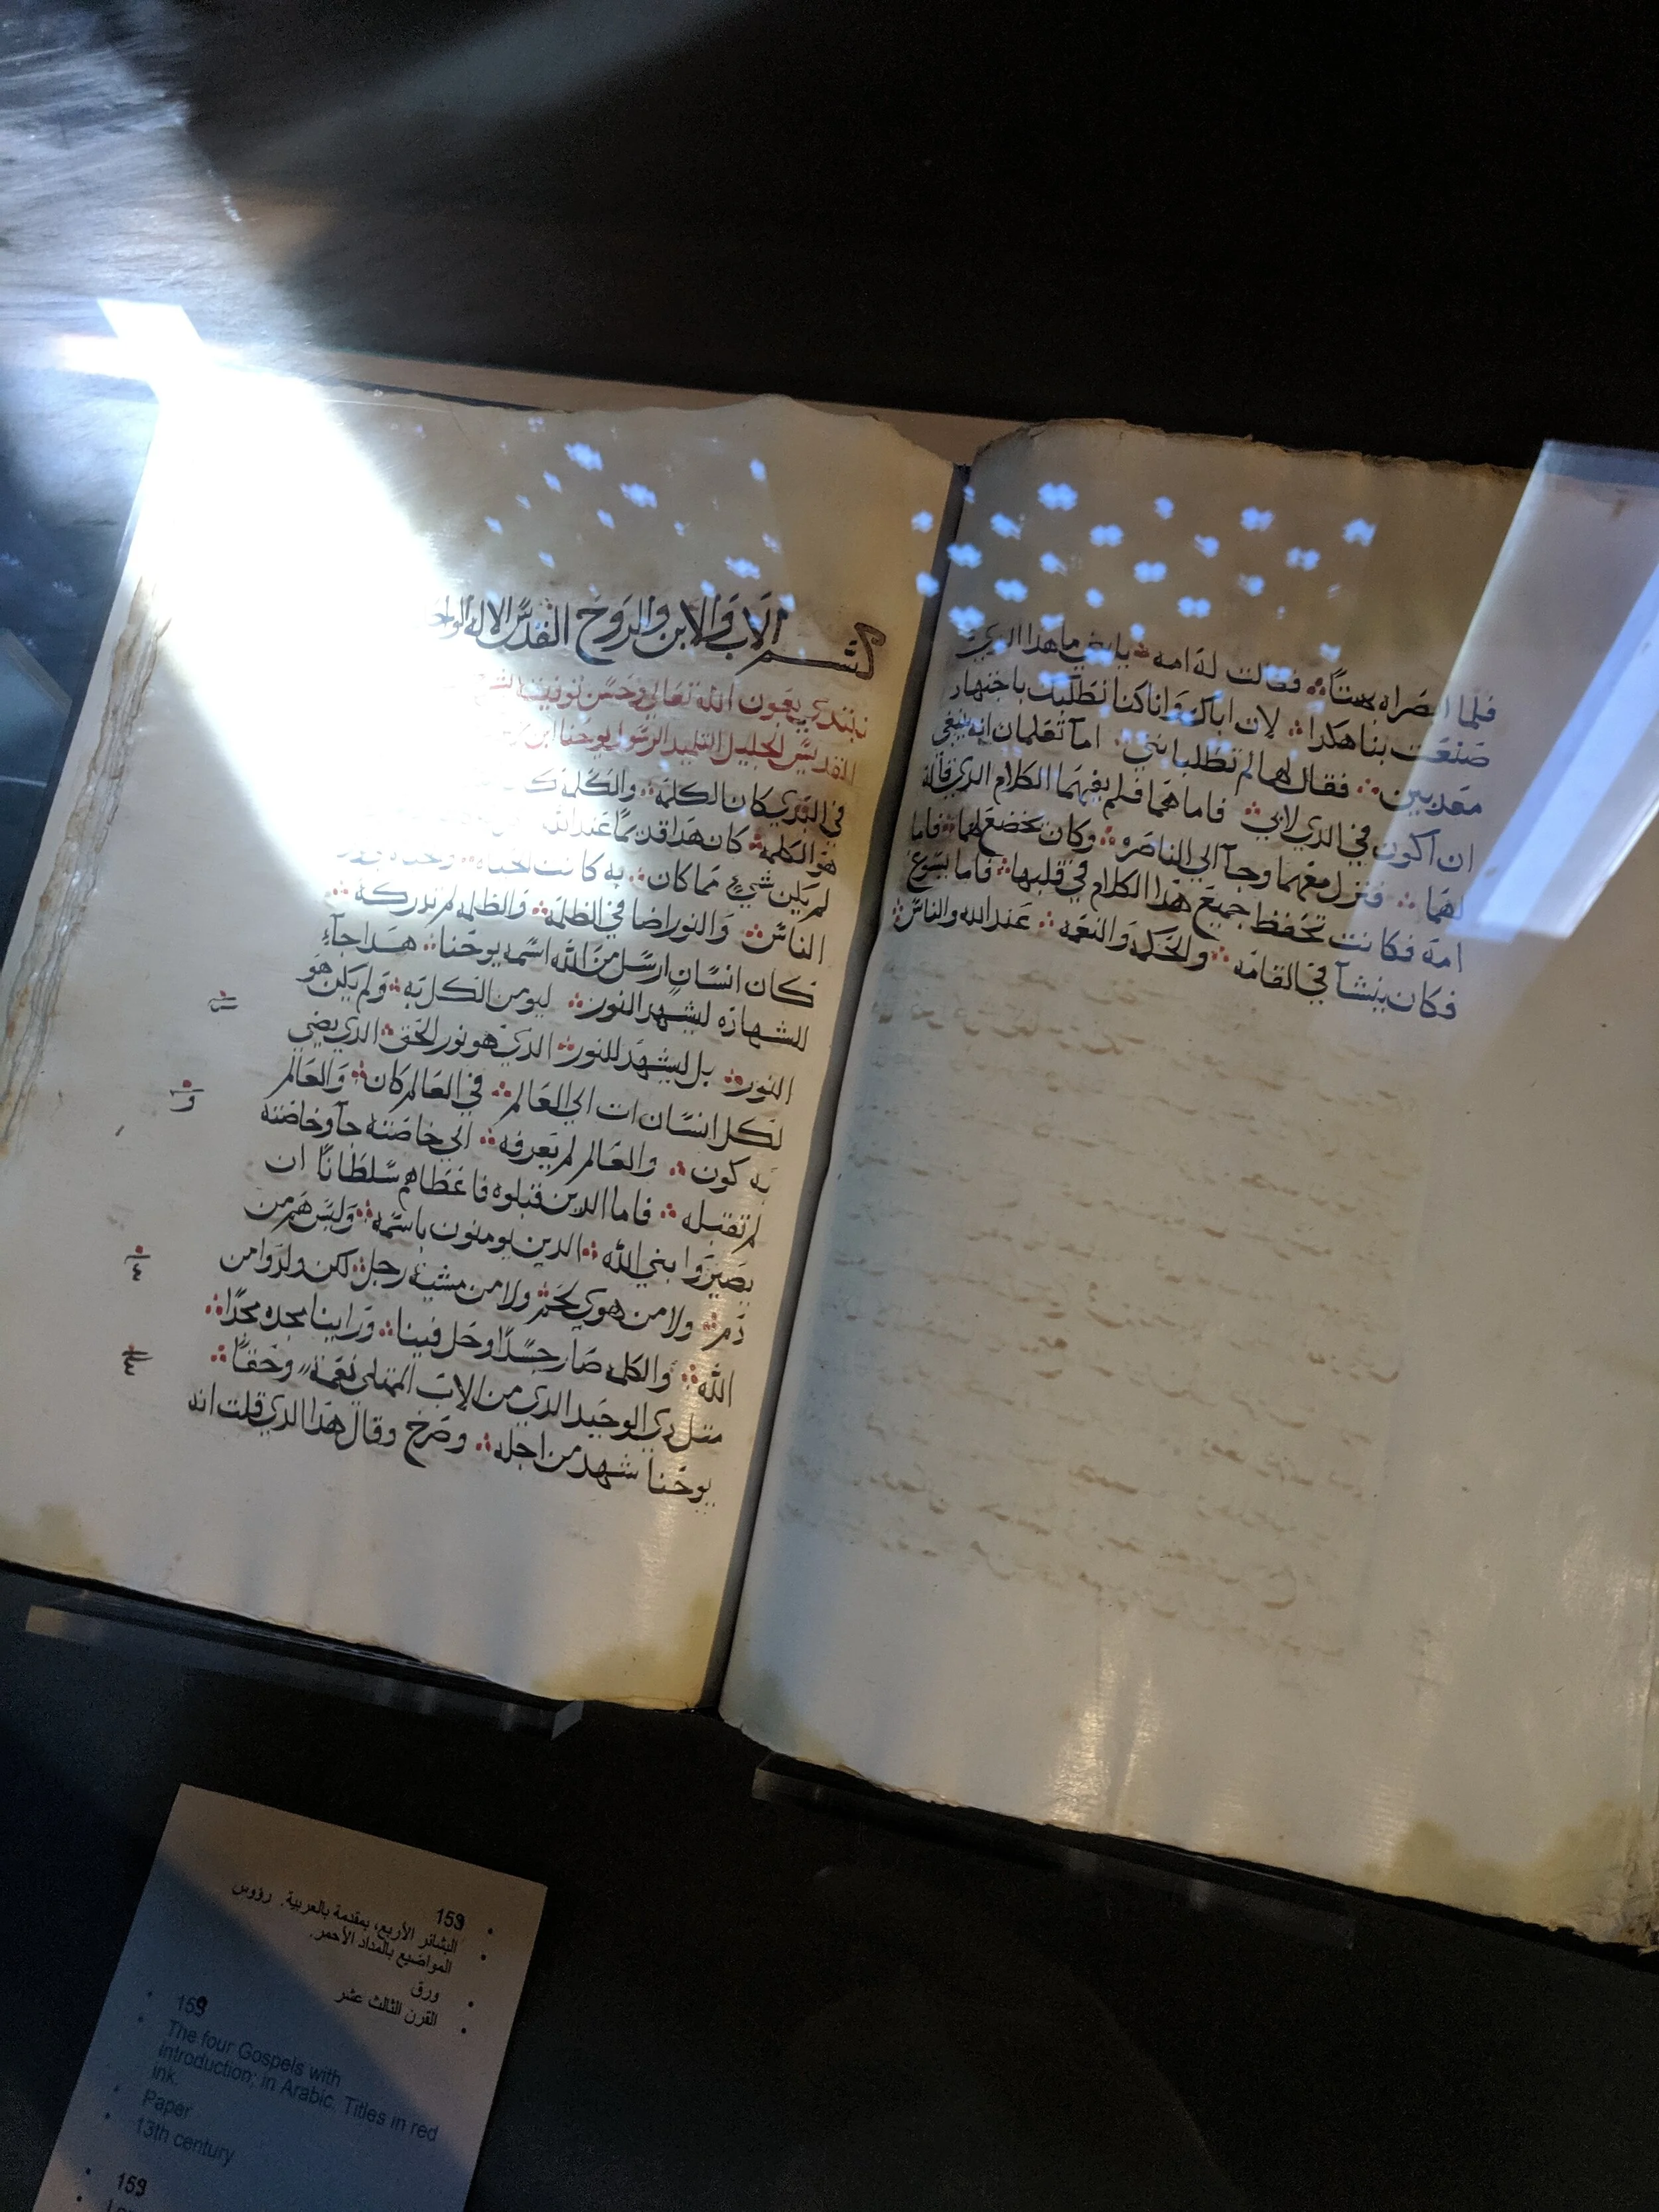 فلما ابصراه بهتا فقالت له امه يا بني ما هذا الذي
صنعت بنا هكذا لان اباك وانا كنا نطلبك باجتهاد
معذبين فقال لهما لم تطلبانني اما تعلمان انه ينبغي
ان اكون في الذي لابي فاما هما فلم يفهما الكلام الذي قاله
لهما فنزل معهما وجآ الي الناصره وكان يخضع لهما فاما
امه فكانت تحفظ جميع هذا الكلام في قلبها فاما يسوع
فكان ينشآ في القامه والحكمه والنعمه عند الله والناس
بسم الاب والابن والروح القدس الاله الواحد
نبتدي بعون الله تعالي وحسن توفيقه
القديس الجليل التلميذ الرسول يوحنا ابن
في البدي كان الكلمه والكلمه
هو الكلمه كان هذا قديما عند الله
لم يكن شيء مما كان به كانت الحياه
الناس والنور اضا في الظلمه والظلمه لم تدركه
كان انسان ارسل من الله اسمه يوحنا هذا جآء
للشهاده ليشهد النور ليومن الكل به ولم يكن هو
النور بل ليشهد للنور الذي هو نور الحق الذي يضي
لكل انسان ات الي العالم في العالم كان والعالم
به كون والعالم لم يعرفه الي خاصته جآ وخاصته
لم تقبله فاما الذين قبلوه فاعطاهم سلطانا ان
يصيروا بني الله الذين يومنون باسمه وليس هم من
دم ولا من هوي لحم ولا من مشية رجل لكن ولدوا من
الله والكلمه صار جسدا وحل فينا وراينا مجده مجدا
مثل ذي الوحيد الذي من الاب الممتلي نعمة وحقا
يوحنا شهد من اجله وصرخ وقال هذا الذي قلت انه
159
البشائر الأربع، بمقدمة بالعربية. رؤوس
المواضيع بالمداد الأحمر.
ورق
القرن الثالث عشر
159
The four Gospels with
introduction; in Arabic. Titles in red
ink.
Paper
13th century
159